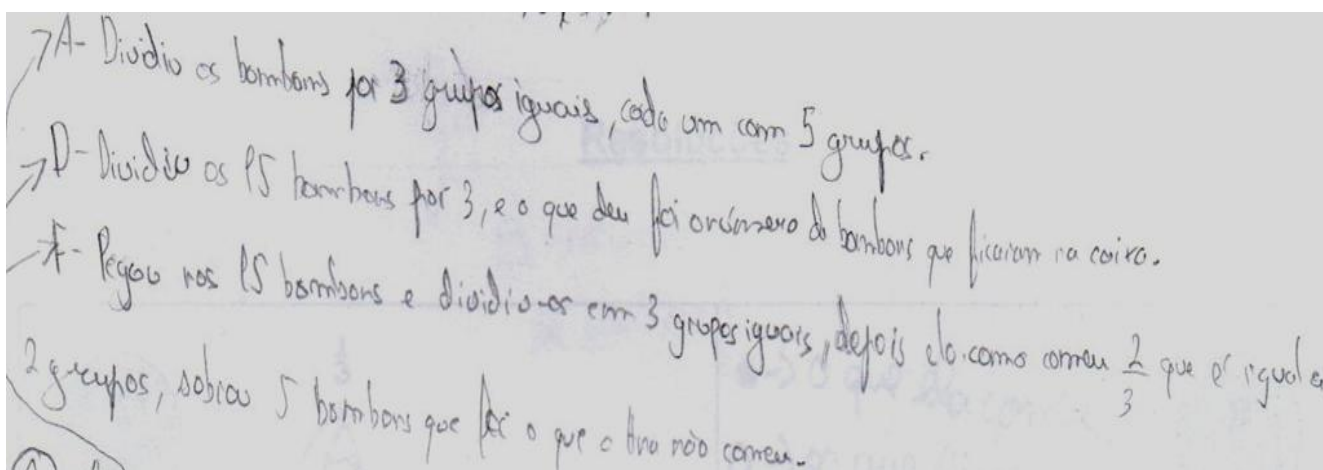 A- Dividio os bombons por 3 grupos iguais, cada um com 5 grupos.
D- Dividio os 15 bombons por 3, e o que deu foi o número de bombons que ficaram na caixa.
F- Pegou nos 15 bombons e dividio-os em 3 grupos iguais, depois ela como comeu 2/3 que é igual a
2 grupos, sobrou 5 bombons que foi o que a Ana não comeu.